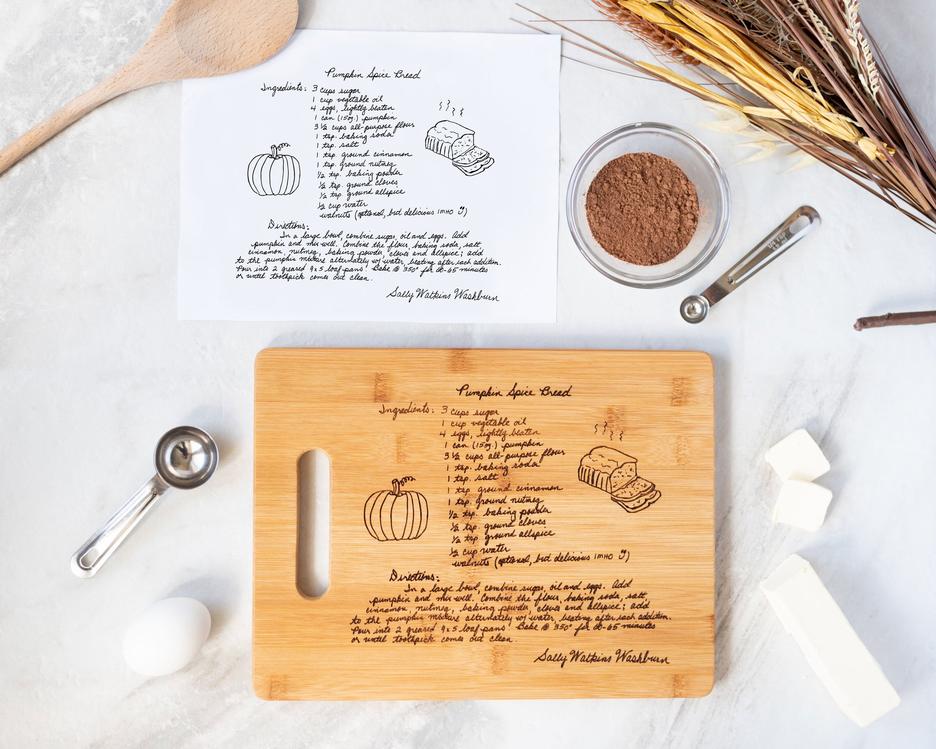 Pumpkin Spice Bread
Ingredients: 3 cups sugar
1 cup vegetable oil
4 eggs, lightly beaten
1 can (15oz.) pumpkin
3½ cups all-purpose flour
1 tsp. baking soda
1 tsp. salt
1 tsp. ground cinnamon
1 tsp. ground nutmeg
½ tsp. baking powder
½ tsp. ground cloves
½ tsp. ground allspice
½ cup water
walnuts (optional, but delicious IMHO )
Directions:
In a large bowl, combine sugar, oil and eggs. Add
pumpkin and mix well. Combine the flour, baking soda, salt,
cinnamon, nutmeg, baking powder, cloves and allspice; add
to the pumpkin mixture alternately w/ water, beating after each addition.
Pour into 2 greased 9x5 loaf pans. Bake @ 350° for 60-65 minutes
or until toothpick comes out clean.
Sally Watkins Washburn
Pumpkin Spice Bread
Ingredients: 3 cups sugar
1 cup vegetable oil
4 eggs, lightly beaten
1 can (15oz.) pumpkin
3½ cups all-purpose flour
1 tsp. baking soda
1 tsp. salt
1 tsp. ground cinnamon
1 tsp. ground nutmeg
½ tsp. baking powder
½ tsp. ground cloves
½ tsp. ground allspice
½ cup water
walnuts (optional, but delicious IMHO )
Directions:
In a large bowl, combine sugar, oil and eggs. Add
pumpkin and mix well. Combine the flour, baking soda, salt,
cinnamon, nutmeg, baking powder, cloves and allspice; add
to the pumpkin mixture alternately w/ water, beating after each addition.
Pour into 2 greased 9x5 loaf pans. Bake @ 350° for 60-65 minutes
or until toothpick comes out clean.
Sally Watkins Washburn